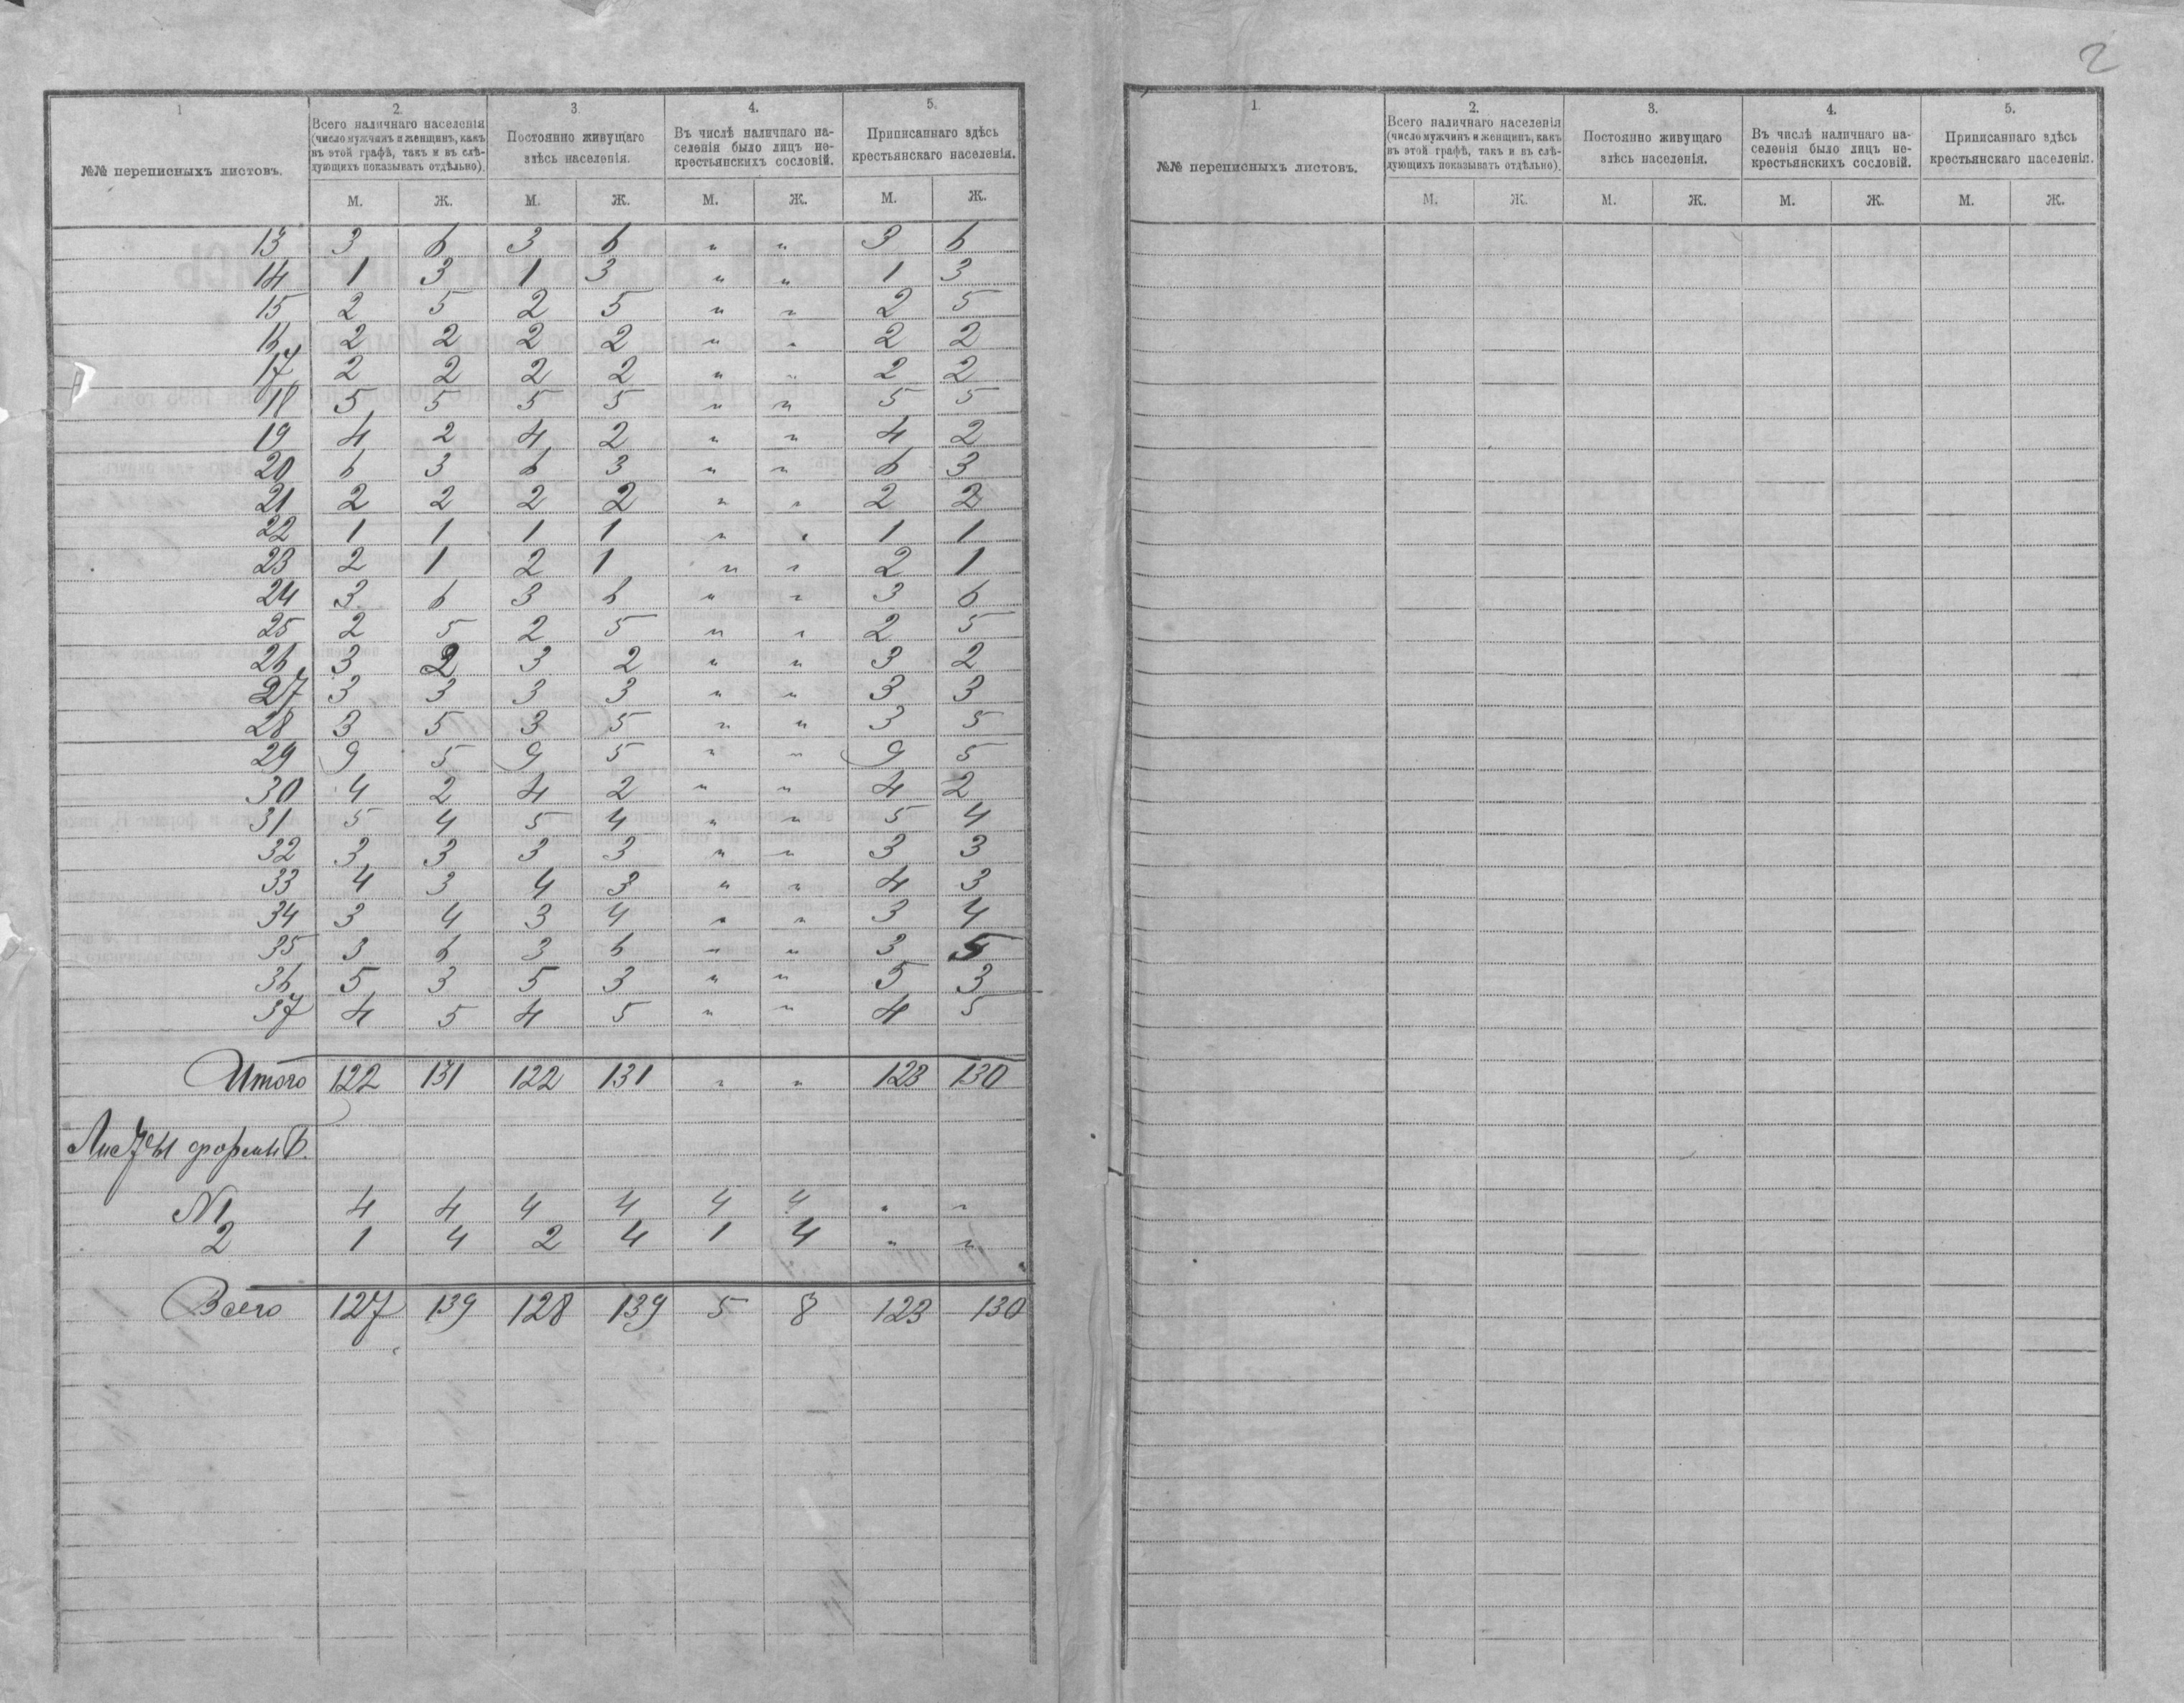 2
1 2. 3. 4. 5.
№№ переписныхъ листовъ.
Всего наличнаго населенія
(число мужчинъ и женщинъ, какъ
въ этой графѣ, такъ и въ слѣ-
дующихъ показывать отдѣльно).
Постоянно живущаго
здѣсь населенія.
Въ числѣ наличнаго на-
селенія было лицъ не-
крестьянскихъ сословій.
Приписаннаго здѣсь
крестьянскаго населенія.
М. Ж. М. Ж. М. Ж. М. Ж.
13 3 6 3 6 " " 3 6
14 1 3 1 3 " " 1 3
15 2 5 2 5 " " 2 5
16 2 2 2 2 " " 2 2
17 2 2 2 2 " " 2 2
18 5 5 5 5 " " 5 5
19 4 2 4 2 " " 4 2
20 6 3 6 3 " " 6 3
21 2 2 2 2 " " 2 2
22 1 1 1 1 " " 1 1
23 2 1 2 1 " " 2 1
24 3 6 3 6 " " 3 6
25 2 5 2 5 " " 2 5
26 3 2 3 2 " " 3 2
27 3 3 3 3 " " 3 3
28 3 5 3 5 " " 3 5
29 9 5 9 5 " " 9 5
30 4 2 4 2 " " 4 2
31 5 4 5 4 " " 5 4
32 3 3 3 3 " " 3 3
33 4 3 4 3 " " 4 3
34 3 4 3 4 " " 3 4
35 3 6 3 6 " " 3 5
36 5 3 5 3 " " 5 3
37 4 5 4 5 " " 4 5
Итого 122 131 122 131 " " 123 130
Листы формы В.
N1 4 4 4 4 4 4 " "
2 1 4 2 4 1 4 " "
Всего 127 139 128 139 5 8 123 130
1. 2. 3. 4. 5.
№№ переписныхъ листовъ.
Всего наличнаго населенія
(число мужчинъ и женщинъ, какъ
въ этой графѣ, такъ и въ слѣ-
дующихъ показывать отдѣльно).
Постоянно живущаго
здѣсь населенія.
Въ числѣ наличнаго на-
селенія было лицъ не-
крестьянскихъ сословій.
Приписаннаго здѣсь
крестьянскаго населенія.
М. Ж. М. Ж. М. Ж. М. Ж.